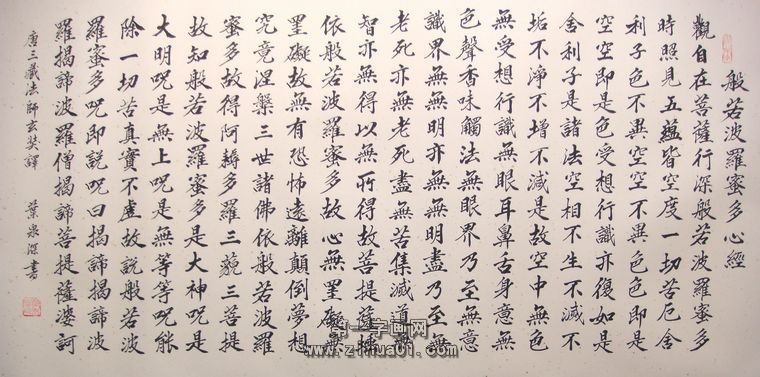 般若波羅蜜多心經
觀自在菩薩行深般若波羅蜜多
時照見五蘊皆空度一切苦厄舍
利子色不異空空不異色色即是
空空即是色受想行識亦復如是
舍利子是諸法空相不生不滅不
垢不淨不增不減是故空中無色
無受想行識無眼耳鼻舌身意無
色聲香味觸法無眼界乃至無意
識界無無明亦無無明盡乃至無
老死亦無老死盡無苦集滅道無
智亦無得以無所得故菩提薩埵
依般若波羅蜜多故心無罣礙無
罣礙故無有恐怖遠離顛倒夢想
究竟涅槃三世諸佛依般若波羅
蜜多故得阿耨多羅三藐三菩提
故知般若波羅蜜多是大神咒是
大明咒是無上咒是無等等咒能
除一切苦真實不虛故說般若波
羅蜜多咒即說咒曰揭諦揭諦波
羅揭諦波羅僧揭諦菩提薩婆訶
唐三藏法師玄奘譯 葉泉深書
第一字画网
www.zihua01.com